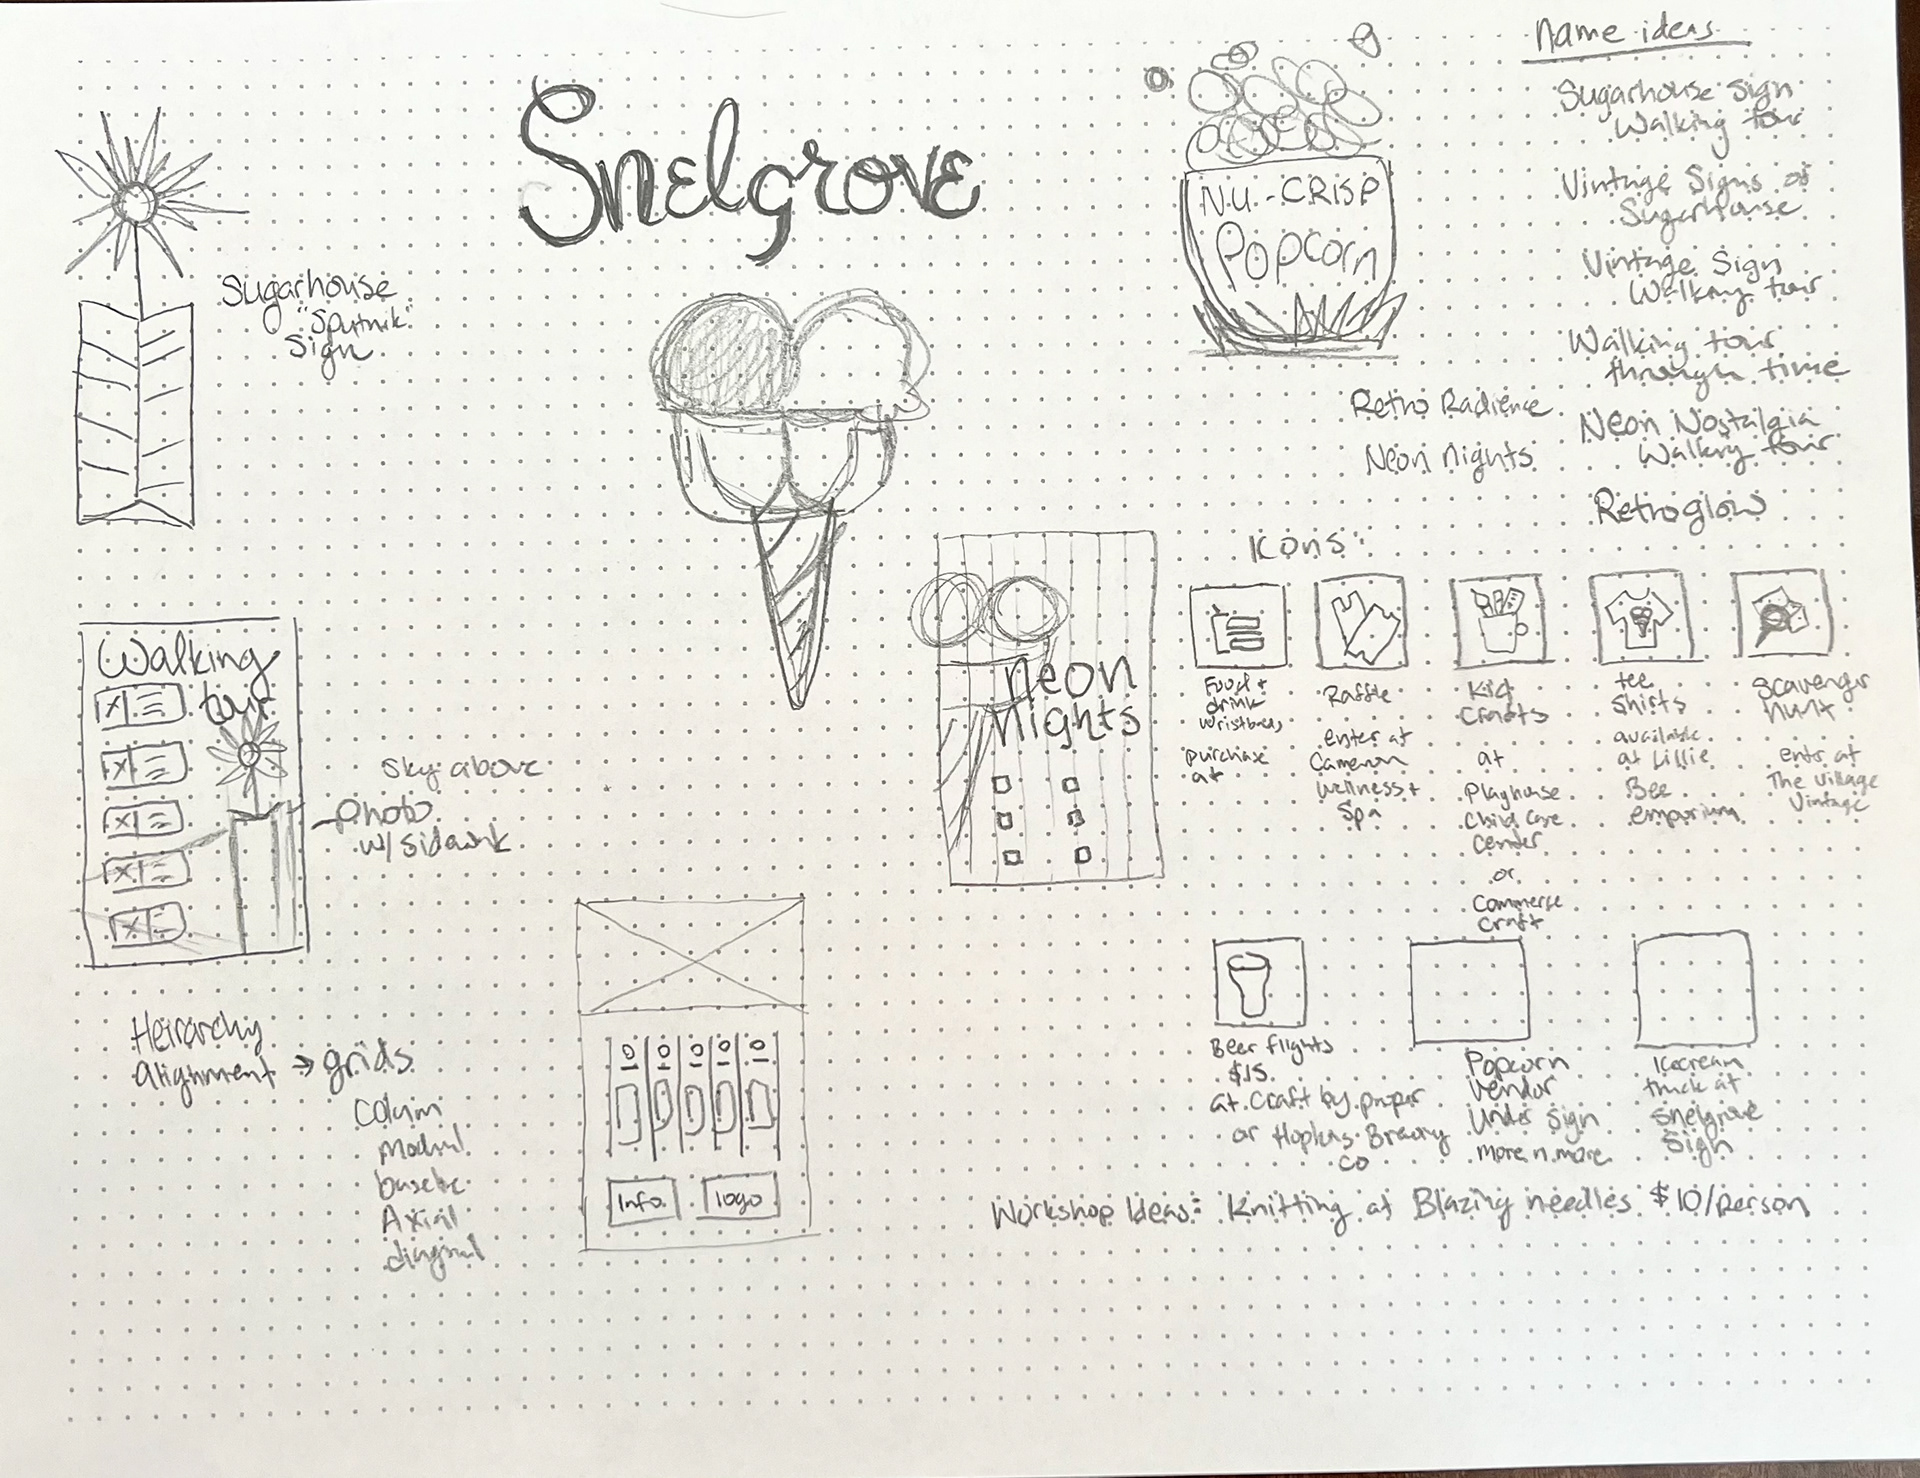 Name ideas
Sugarhouse Sign
Walking tour
Vintage Signs of
Sugarhouse
Vintage Sign
Walking tour
Walking tour
through time
Neon Nostalgia
Walking tour
Retroglow
Retro Radience
Neon Nights
Snelgrove
NU-CRISP
Popcorn
Sugarhouse
"Sputnik"
Sign
Walking
tour
Sky above
photo
w/ sidewalk
Heirarchy
alignment → grids
Column
axial
diagonal
info
logo
neon
nights
Icons:
Food +
drink
wristbands
purchase
at
Raffle
enter at
Cameron
Wellness +
Spa
Kid
Crafts
at
Playhouse
Child Care
Center
or
Commerce
Craft
tee
shirts
available
at Lillie
Bee
emporium
Scavenger
hunt
enter at
The Village
Vintage
Beer flights
$15
at Craft by proper
or Hopkins Brewry
co
Popcorn
Vendor
Under Sign
more n more
Icecream
truck at
Snelgrove
Sign
Workshop Ideas: Knitting at Blazing needles $10/person